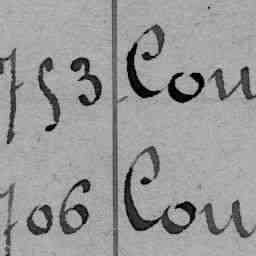 753 Cou
706 Cou